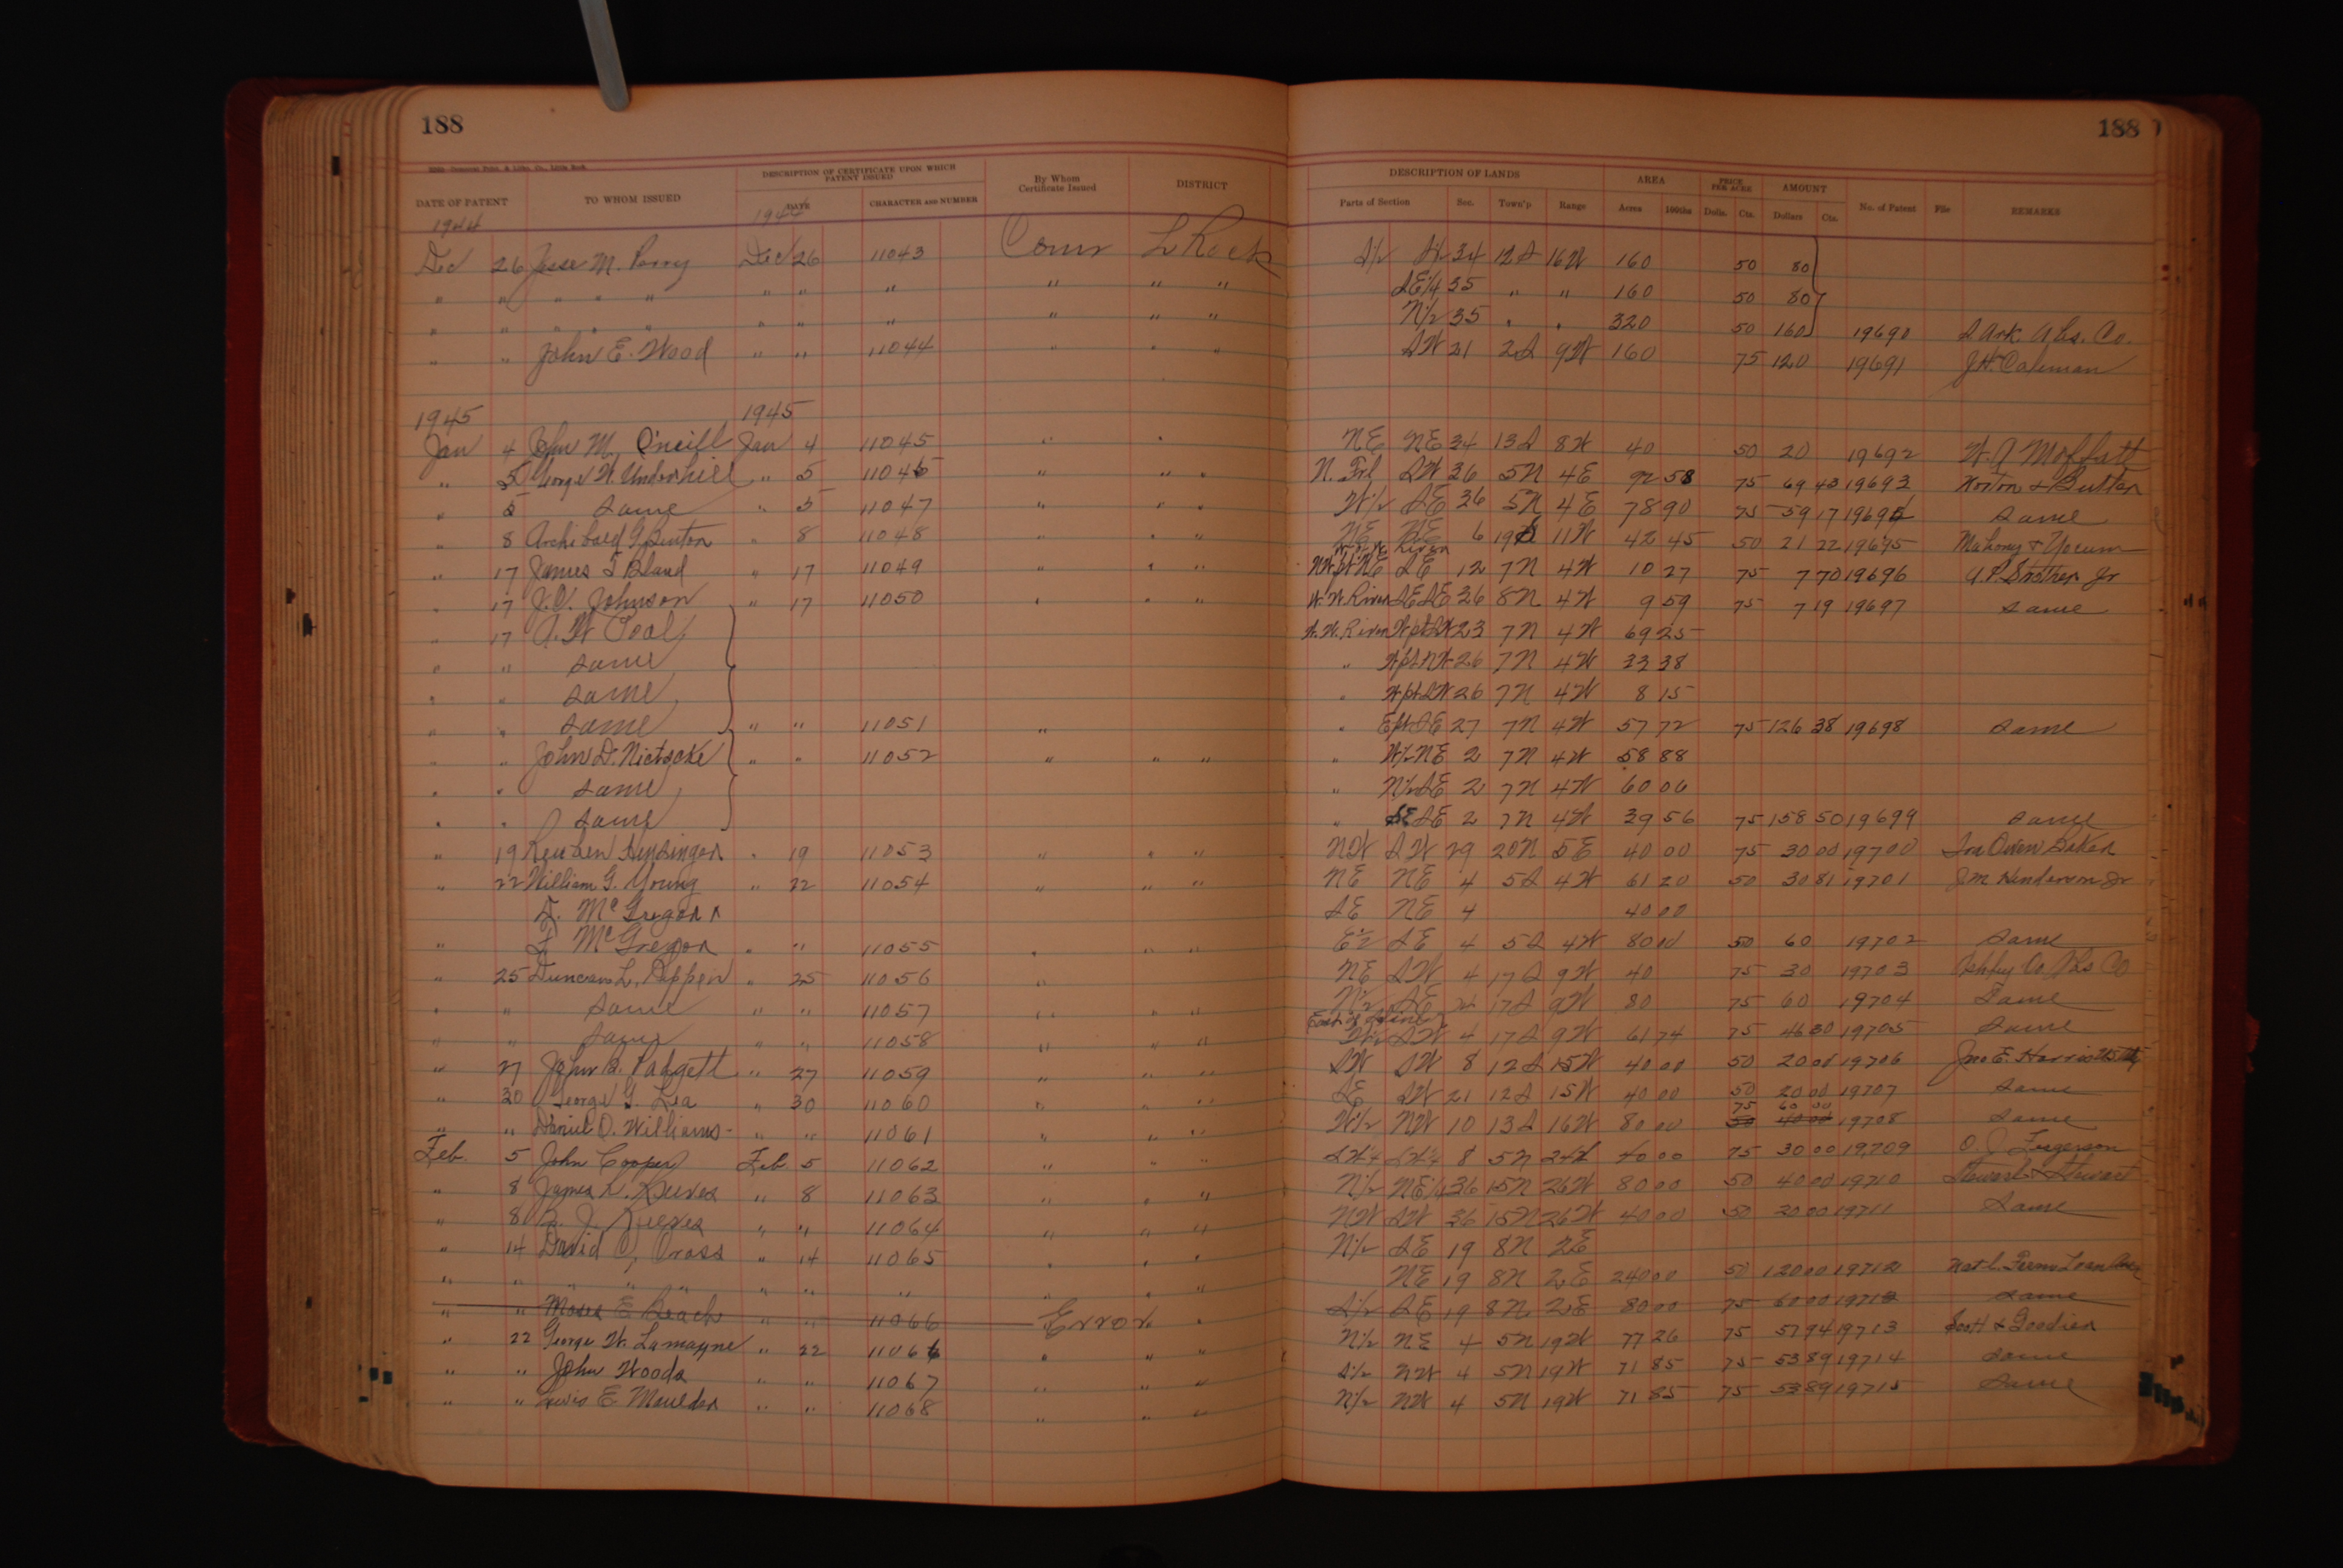 188
188
DESCRIPTION OF CERTIFICATE UPON WHICH PATENT ISSUED
DATE OF PATENT TO WHOM ISSUED DATE CHARACTER AND NUMBER By Whom Certificate Issued DISTRICT
DESCRIPTION OF LANDS AREA PRICE PER ACRE AMOUNT
Parts of Section Sec. Town'p Range Acres 100ths Dolls. Cts. Dollars Cts. No. of Patent File REMARKS
1944 1944
Dec 26 Jesse M. Perry Dec 26 11043 Comr L Rock S½ S½ 34 12S 16W 160 50 80
" " " " " " " " " " " SE¼ 35 " " 160 50 80
" " " " " " " " " " " N½ 35 " " 320 50 160 19690 S Ark. Abs. Co.
" " John E. Wood " " 11044 " " " SW 21 2S 9W 160 75 120 19691 J.H. Coleman
1945 1945
Jan 4 John M. O'neill Jan 4 11045 " " NE NE 34 13S 8W 40 50 20 19692 W.A Moffatt
" 5 George W. Underhill " 5 11046 " " " N. Frl SW 36 5N 4E 92 58 75 69 43 19693 Norton & Butler
" 5 Same " 5 11047 " " " W½ SE 36 5N 4E 78 90 75 59 17 19694 Same
" 8 Archibald G Benton " 8 11048 " " " NE NE 6 19 11W 42 45 50 21 22 19695 Mahony & Yocum
" 17 James T Bland " 17 11049 " " " NW pt NE SE 12 7N 4W 10 27 75 7 70 19696 A.P. Smother Jr
" 17 J.V. Johnson " 17 11050 " " " W. W. River SE SE 36 8N 4W 9 59 75 7 19 19697 Same
" 17 A.W Poal W. W. River W pt SW 23 7N 4W 69 25
" " Same " W pt NW 26 7N 4W 33 38
" " Same " W pt SW 26 7N 4W 8 15
" " Same " " 11051 " " E pt SE 27 7N 4W 57 72 75 126 38 19698 Same
" " John D. Nietzcke " " 11052 " " " " W½ NE 2 7N 4W 58 88
" " Same " N½ SE 2 7N 4W 60 06
" " Same " SE SE 2 7N 4W 39 56 75 158 50 19699 Same
" 19 Reuben Hunsinger " 19 11053 " " " NW SW 29 20N 5E 40 00 75 30 00 19700 Ira Owen Baker
" 22 William G. Young " 22 11054 " " " NE NE 4 5S 4W 61 20 50 30 81 19701 J.M Henderson Jr
F. McGregor SE NE 4 40 00
" F McGregor " " 11055 " " " E½ SE 4 5S 4W 80 00 50 60 19702 Same
" 25 Duncan L. Pippen " 25 11056 " NE SW 4 17S 9W 40 75 30 19703 Ashley Co Abs Co
" " Same " " 11057 " " " N½ SE 17S 9W 80 75 60 19704 Same
" " Same " " 11058 " " " W½ SW 4 17S 9W 61 74 75 46 30 19705 Same
" 27 John B. Padgett " 27 11059 " " " SW SW 8 12S 15W 40 00 50 20 00 19706 Jno E. Harris
" 30 George G. Lea " 30 11060 " " " SE SW 21 12S 15W 40 00 50 20 00 19707 Same
75 60 00
" " Daniel O. Williams " " 11061 " " " W½ NW 10 13S 16W 80 00 50 40 00 19708 Same
Feb. 5 John Cooper Feb 5 11062 " " " SW¼ SW¼ 8 5N 40 00 75 30 00 19709 O. J. Furgerson
" 8 James L. Reeves " 8 11063 " " " N½ NE¼ 36 15N 26W 80 00 50 40 00 19710 Stewart & Stewart
" 8 J. Reeves " " 11064 " " " NW SW 36 15N 26W 40 00 50 20 00 19711 Same
" 14 David C. Cross " 14 11065 " " " N½ SE 19 8N 2E
" " " " " " " " " " " NE 19 8N 2E 240 00 50 120 00 19712 Nat'l. Farm Loan
" " Moses E Beach " " 11066 Error " S½ SE 19 8N 2E 80 00 75 60 00 19713 Same
" 22 George W. Lamayne " 22 11066 " " " N½ NE 4 5N 19W 77 26 75 57 94 19713 Scott & Goodier
" " John Woods " " 11067 " " " S½ NW 4 5N 19W 71 85 75 53 89 19714 Same
" " Lewis E Moulder " " 11068 " " " N½ NW 4 5N 19W 71 85 75 53 89 19715 Same